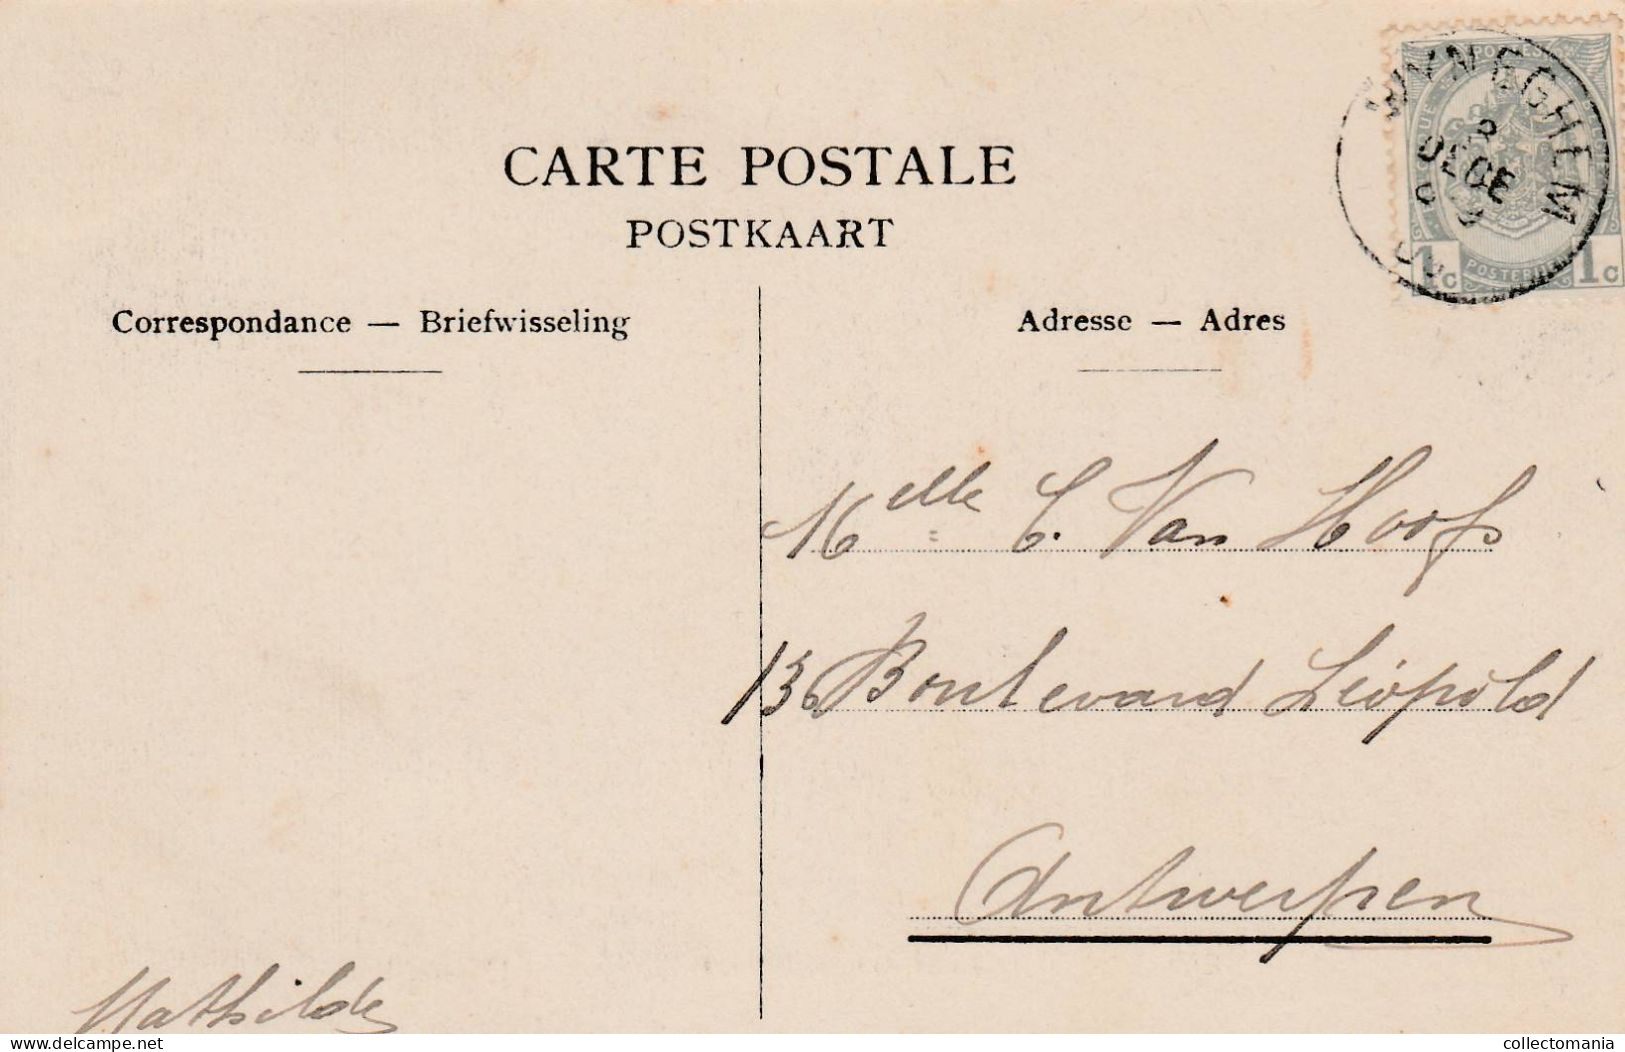 CARTE POSTALE
POSTKAART
POSTES
WYNEGHEM
DECE
POSTERIJEN
1c 1c
Correspondance — Briefwisseling
Adresse — Adres
Melle C. Van Hoof
136 Boulevard Léopold
Antwerpen
Mathilde
delcampe.net
collectomania